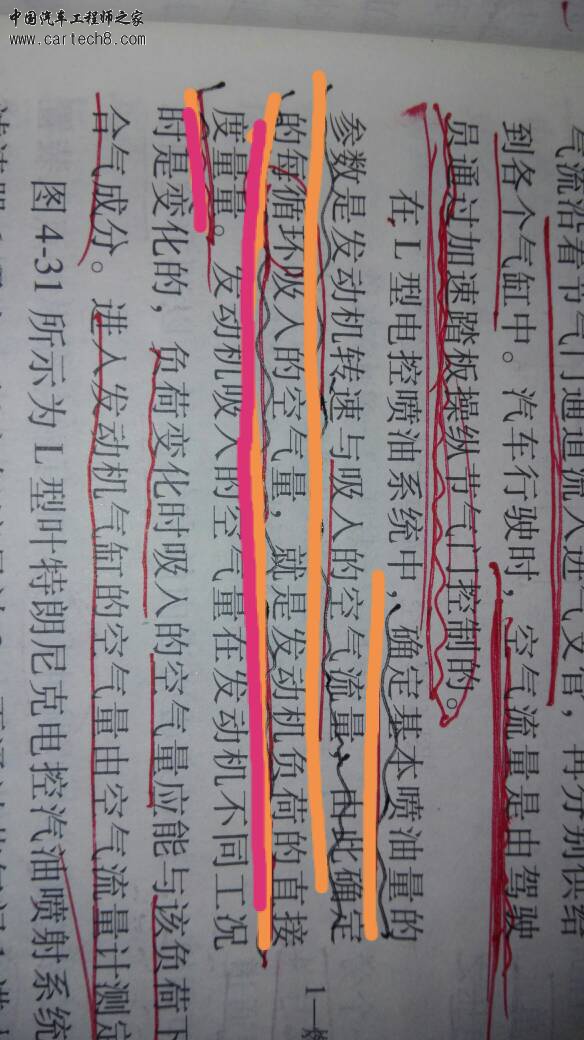 中国汽车工程师之家
www.cartech8.com
气流沿着节气门通道流入进气支管，再分别供给
到各个气缸中。汽车行驶时，空气流量是由驾驶
员通过加速踏板操纵节气门控制的。
在L型电控喷油系统中，确定基本喷油量的
参数是发动机转速与吸入的空气流量，由此确定
的每循环吸入的空气量，就是发动机负荷的直接
度量量。发动机吸入的空气量在发动机不同工况
时是变化的，负荷变化时吸入的空气量应能与该负荷下
合气成分。进入发动机气缸的空气量由空气流量计测定
图4-31所示为L型叶特朗尼克电控汽油喷射系统
1—